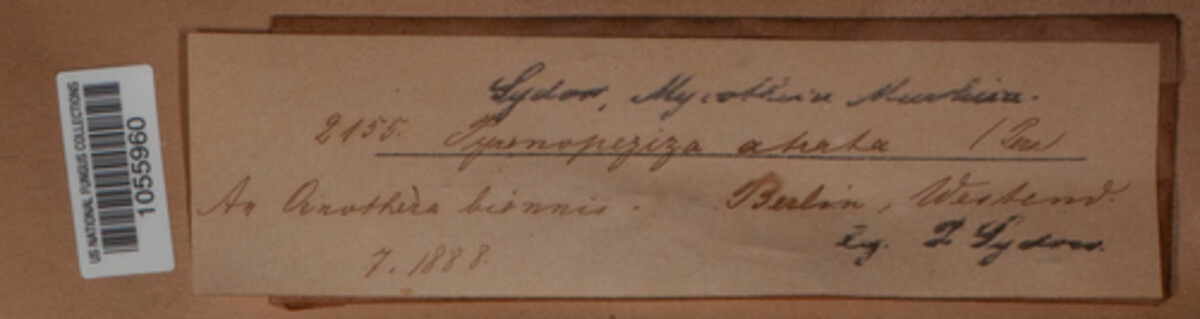 US NATIONAL FUNGUS COLLECTIONS
1055960
Sydow, Mycotheca Marchica.
2155. Pyrenopeziza atrata (Pers)
An Oenothera biennis. Berlin, Westend.
7. 1888.
Lg. P. Sydow.